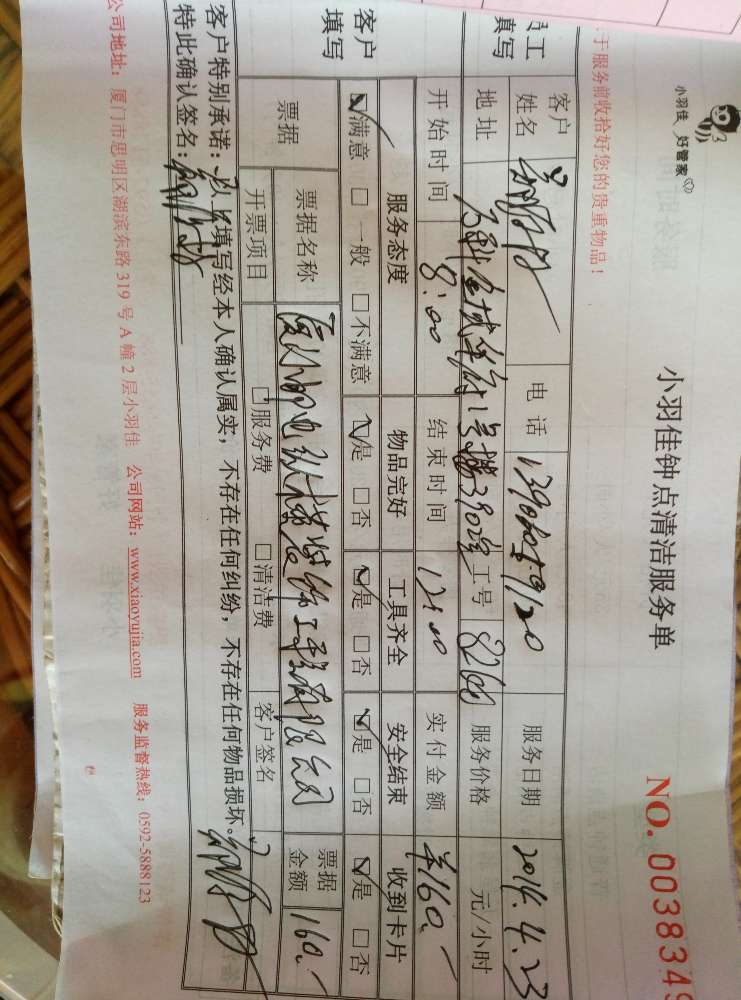 小羽佳 好管家
小羽佳钟点清洁服务单
NO. 003834
于服务前收拾好您的贵重物品！
员工填写
客户姓名 电话 服务日期 2014.4.23
地址 工号 服务价格 元/小时
开始时间 8:00 结束时间 12:00 实付金额 ¥160.-
客户填写
服务态度 物品完好 工具齐全 安全结束 收到卡片
☑满意 □一般 □不满意 ☑是 □否 ☑是 □否 ☑是 □否 ☑是 □否
票据 票据名称 票据金额 160.-
开票项目 □服务费 □清洁费 客户签名
客户特别承诺：以上填写经本人确认属实，不存在任何纠纷，不存在任何物品损坏。
特此确认签名：
公司地址：厦门市思明区湖滨东路 319 号 A 幢 2 层小羽佳 公司网站：www.xiaoyujia.com 服务监督热线：0592-5888123